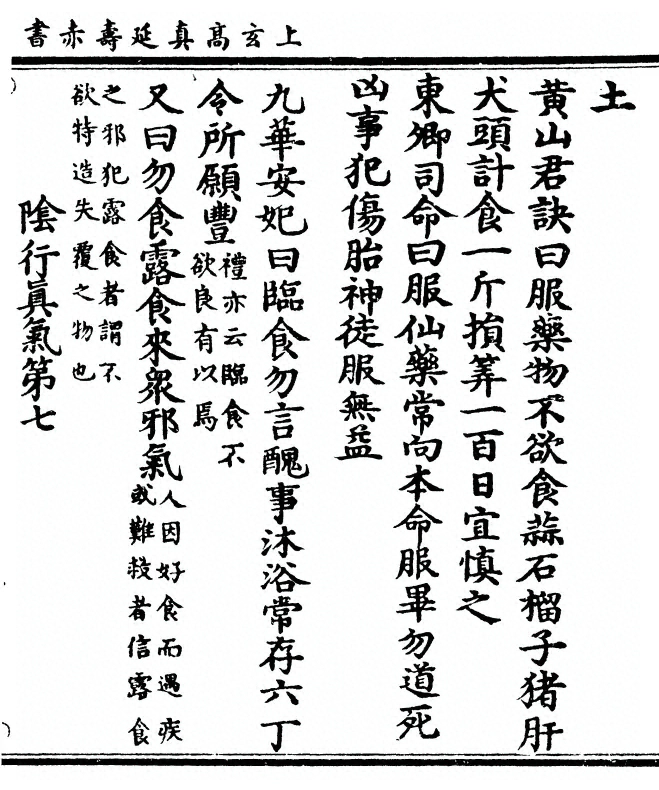 上玄高真延壽赤書
土
黃山君訣曰服藥物不欲食蒜石榴子猪肝
犬頭計食一斤損筭一百日宜慎之
東卿司命曰服仙藥常向本命服畢勿道死
凶事犯傷胎神徒服無益
九華安妃曰臨食勿言醜事沐浴常存六丁
令所願豐禮亦云臨食不欲良有以焉
又曰勿食露食來衆邪氣人因好食而遇疾或難救者信露食
之邪犯露食者謂不
欲特造失覆之物也
陰行眞氣第七